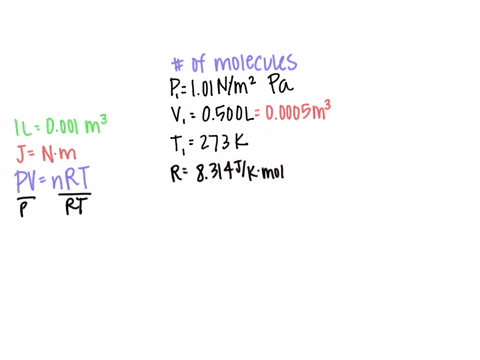 # of molecules
P₁= 1.01 N/m² Pa
V₁ = 0.500L = 0.0005m³
T₁ = 273 K
R= 8.314 J/K·mol
1L = 0.001 m³
J = N·m
PV = nRT
P RT